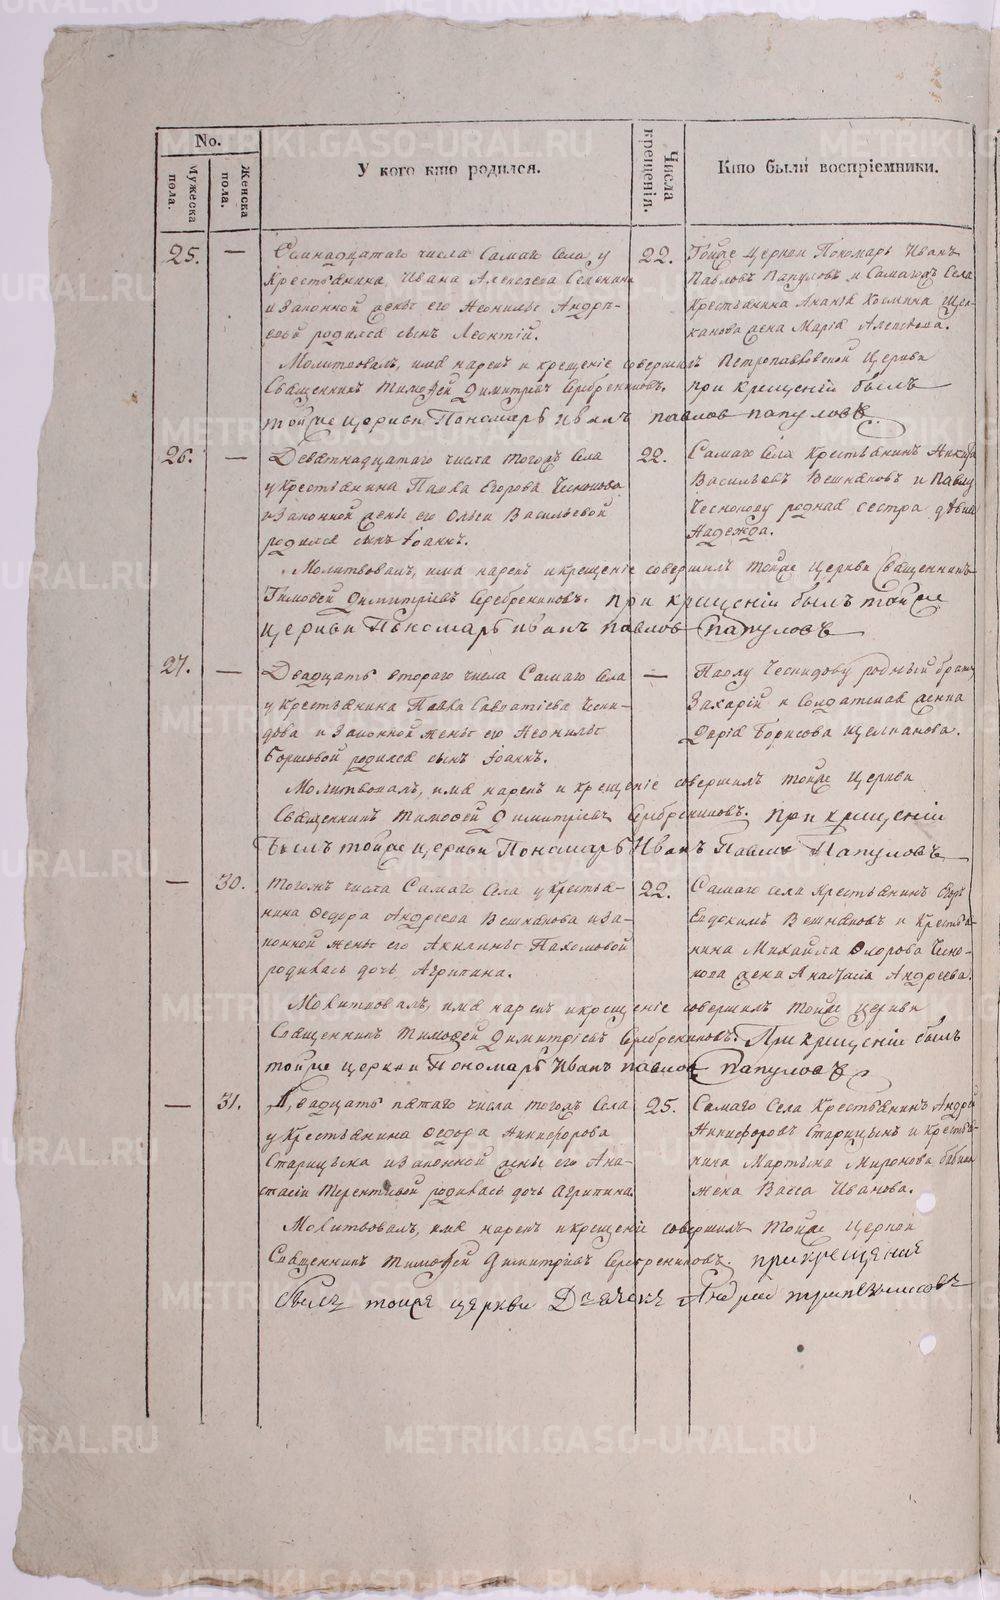 No.
Мужеска пола.
Женска пола.
У кого кто родился.
Числа крещенія.
Кто были воспріемники.
25. —
Семнадцатаго числа Самаго Села, у
Крестьянина, Ивана Алексеева
и законной жены его Неонилы Андре-
евой родился сынъ Леонтій.
22.
Тойже Церкви Пономарь Иванъ
Павловъ Папуловъ и Самагожъ Села
Крестьянина Ананія Козмина Щел-
канова жена Марія Алексѣева.
Молитвовалъ, имя нарекъ и крещеніе совершилъ Петропавловской Церкви
Священникъ Тимофей Димитріевъ Серебрениковъ. при крещеніи былъ
тойже церкви Пономарь Иванъ павлов папуловъ
26. —
Девятнадцатаго числа тогожъ Села
у Крестьянина Павла Егорова Чеснокова
и законной жены его Ольги Васильевой
родился сынъ Іоаннъ.
22.
Самаго Села Крестьянинъ Никита
Васильевъ Вешняковъ и Павлу
Чеснокову родная сестра дѣвица
Надежда.
Молитвовалъ, имя нарекъ и крещеніе совершилъ тойже Церкви Священникъ
Тимофей Димитріевъ Серебрениковъ. при крещеніи былъ тойже
церкви Пономарь иванъ павлов папуловъ
27. —
Двадцать втораго числа Самаго Села
у Крестьянина Павла Савватіева Чесни-
дова и законной жены его Неонилы
Борисовой родился сынъ Іоаннъ.
—
Павлу Чеснидову родный братъ
Захарій и Солдатская женка
Дарія Борисова Щелканова.
Молитвовалъ, имя нарекъ и крещеніе совершилъ тойже Церкви
Священникъ Тимофей Димитріевъ Серебрениковъ. При крещеніи
былъ тойже церкви Пономарь Иванъ Павловъ Папуловъ
— 30.
Тогожъ числа Самаго Села у Крестья-
нина Федора Андреева Вешнякова и за-
конной жены его Акилины Пахомовой
родилась дочь Агрипина.
22.
Самаго села Крестьянинъ
Евдокимъ Вешняковъ и Крестья-
нина Михайла Федорова Чесно-
кова жена Анастасія Андреева.
Молитвовалъ, имя нарекъ и крещеніе совершилъ тойже церкви
Священникъ Тимофей Димитріевъ Серебрениковъ. При крещеніи былъ
тойже церкви Пономарь Иванъ павлов папуловъ
— 31.
Двадцать пятаго числа тогожъ Села
у Крестьянина Федора Никифорова
Старицына и законной жены его Ана-
стасіи Терентьевой родилась дочь Агрипина.
25.
Самаго Села Крестьянинъ Андрей
Никифоровъ Старицынъ и Крестья-
нина Мартына Миронова
жена Васса Иванова.
Молитвовалъ, имя нарекъ и крещеніе совершилъ тойже Церкви
Священникъ Тимофей Димитріевъ Серебрениковъ. при крещении
былъ тойже церкви Дьячекъ Андрей
METRIKI.GASO-URAL.RU